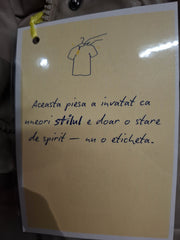 Aceasta piesa a invatat ca
uneori stilul e doar o stare
de spirit — nu o eticheta.